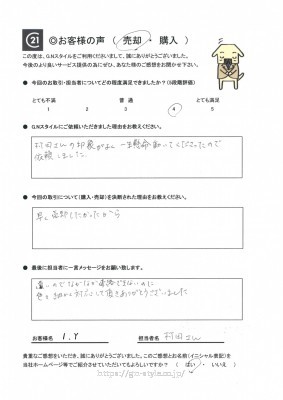 21 ◎お客様の声 ( 売却 ・ 購入 )
この度は、G.Nスタイルをご利用くださいまして、誠にありがとうございました。
今後のより良いサービス提供の為にぜひ、あなた様のご感想をお聞かせ下さい。
● 今回のお取引・担当者についてどの程度満足できましたか？（5段階評価）
とても不満 普通 とても満足
1 2 3 4 5
● G.Nスタイルにご依頼いただきました理由をお教えください。
村田さんの印象がよく 一生懸命動いてくださったので
依頼しました。
● 今回の取引について（購入・売却）を決断された理由をお教えください。
早く売却したかったから
● 最後に担当者に一言メッセージをお願い致します。
遠いのでなかなか来れないのに
色々細かく対応して頂きありがとうございました
お客様名 I.Y 担当者名 村田さん
貴重なご感想をいただき、誠にありがとうございました。このご感想とお名前（イニシャル表記）を
当社ホームページ等でご紹介させていただいてもよろしいですか？ ( はい ・ いいえ )
https://gn-style.co.jp/